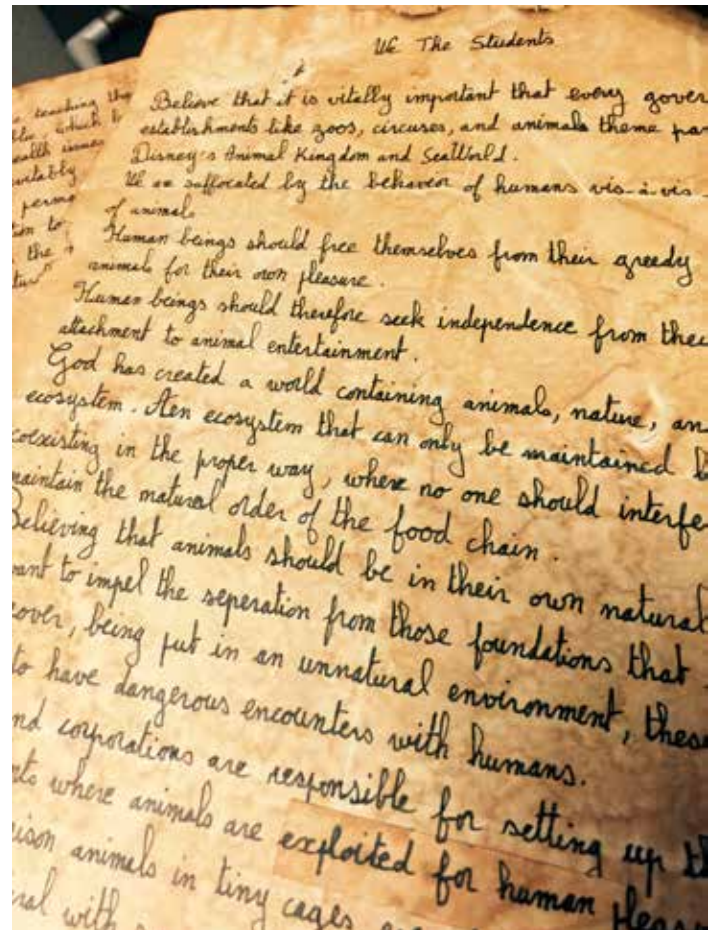 We The Students
Believe that it is vitally important that every gover
establishments like zoos, circuses, and animals theme par
Disney's Animal Kingdom and SeaWorld.
We are suffocated by the behavior of humans vis-à-vis
of animals
Human beings should free themselves from their greedy
animals for their own pleasure.
Human beings should therefore seek independence from thei
attachment to animal entertainment.
God has created a world containing animals, nature, an
ecosystem. Aen ecosystem that can only be maintained b
coexisting in the proper way, where no one should interfe
maintain the natural order of the food chain.
Believing that animals should be in their own natural
want to impel the seperation from those foundations that
over, being put in an unnatural environment, these
to have dangerous encounters with humans.
nd corporations are responsible for setting up th
nts where animals are exploited for human pleas
rison animals in tiny cages
ral with
teaching the
which
ealth issues
evitably
perma
on to
the